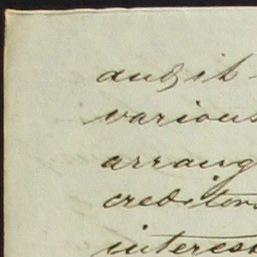 and it
various
arrang
creditors
interes